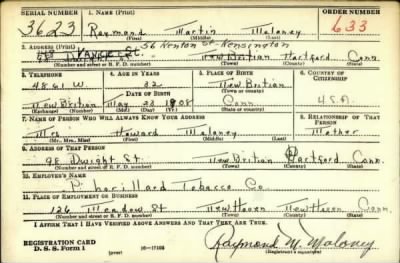 SERIAL NUMBER 1. NAME (Print) ORDER NUMBER
3623 Raymond Martin Maloney 633
(First) (Middle) (Last)
2. ADDRESS (Print) 56 Kenton St - Kensington
VANCE ST. New Britian Hartford Conn.
(Number and street or R. F. D. number) (Town) (County) (State)
3. TELEPHONE 4. AGE IN YEARS 5. PLACE OF BIRTH 6. COUNTRY OF CITIZENSHIP
4861 W 32 New Britian
DATE OF BIRTH (Town or county)
New Britian May 23 1908 Conn U.S.A.
(Exchange) (Number) (Mo.) (Day) (Yr.) (State or country)
7. NAME OF PERSON WHO WILL ALWAYS KNOW YOUR ADDRESS 8. RELATIONSHIP OF THAT PERSON
Mrs Howard Maloney Mother
(Mr., Mrs., Miss) (First) (Middle) (Last)
9. ADDRESS OF THAT PERSON
98 Dwight St New Britian Hartford Conn.
(Number and street or R. F. D. number) (Town) (County) (State)
10. EMPLOYER'S NAME
P. Lorillard Tobacco Co.
11. PLACE OF EMPLOYMENT OR BUSINESS
126 Meadow St New Haven New Haven Conn.
(Number and street or R. F. D. number) (Town) (County) (State)
I AFFIRM THAT I HAVE VERIFIED ABOVE ANSWERS AND THAT THEY ARE TRUE.
REGISTRATION CARD
D. S. S. Form 1 (over) 16—17105 Raymond M. Maloney
(Registrant's signature)